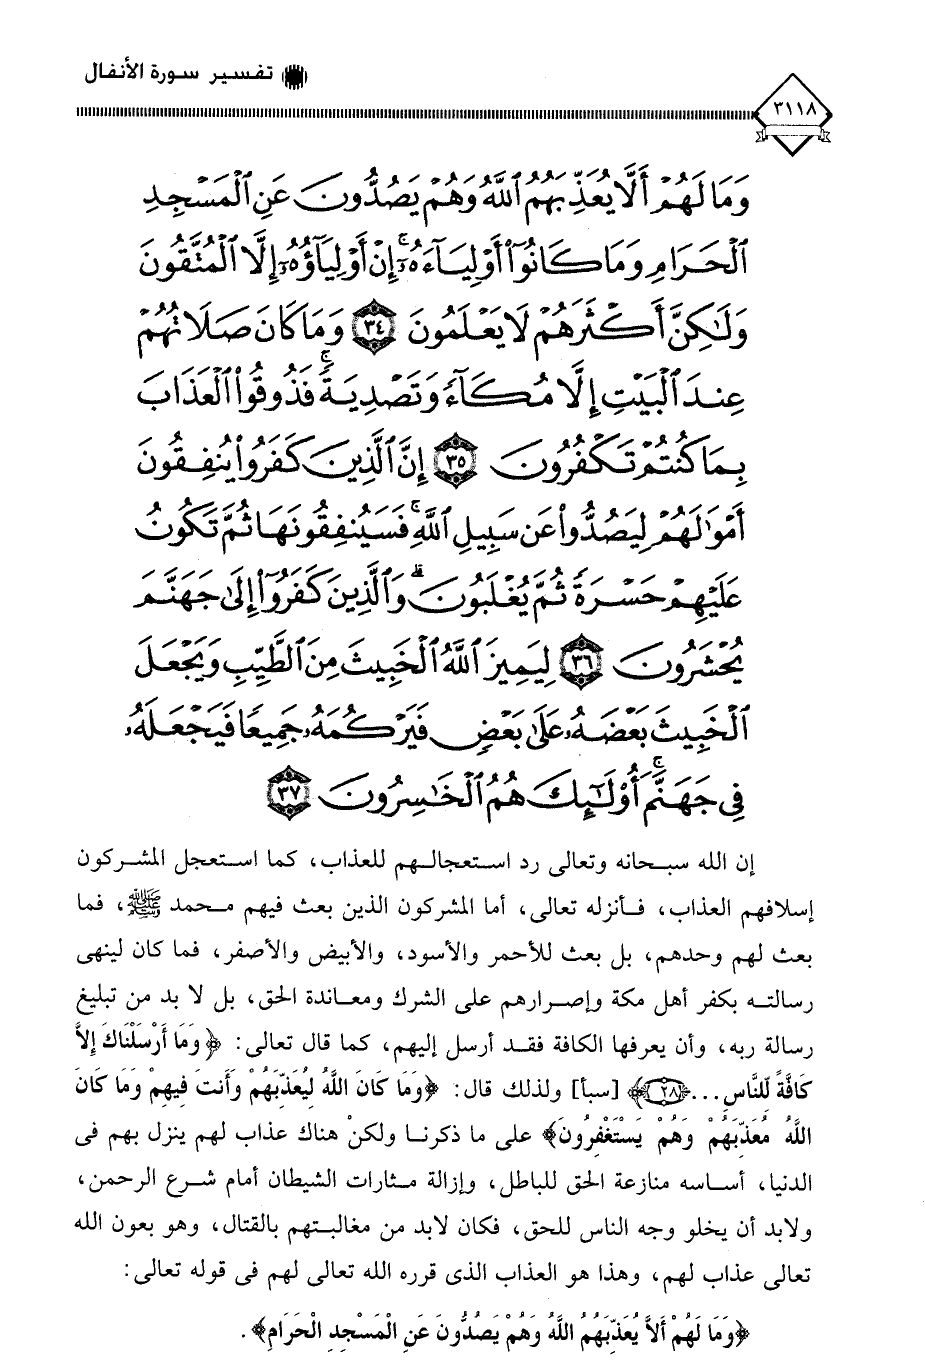 تفسير سورة الأنفال
٣١١٨
وَمَا لَهُمْ أَلَّا يُعَذِّبَهُمُ ٱللَّهُ وَهُمْ يَصُدُّونَ عَنِ ٱلْمَسْجِدِ
ٱلْحَرَامِ وَمَا كَانُوٓا۟ أَوْلِيَآءَهُۥٓ ۚ إِنْ أَوْلِيَآؤُهُۥٓ إِلَّا ٱلْمُتَّقُونَ
وَلَـٰكِنَّ أَكْثَرَهُمْ لَا يَعْلَمُونَ ٣٤ وَمَا كَانَ صَلَاتُهُمْ
عِندَ ٱلْبَيْتِ إِلَّا مُكَآءً وَتَصْدِيَةً ۚ فَذُوقُوا۟ ٱلْعَذَابَ
بِمَا كُنتُمْ تَكْفُرُونَ ٣٥ إِنَّ ٱلَّذِينَ كَفَرُوا۟ يُنفِقُونَ
أَمْوَٰلَهُمْ لِيَصُدُّوا۟ عَن سَبِيلِ ٱللَّهِ ۚ فَسَيُنفِقُونَهَا ثُمَّ تَكُونُ
عَلَيْهِمْ حَسْرَةً ثُمَّ يُغْلَبُونَ ۗ وَٱلَّذِينَ كَفَرُوٓا۟ إِلَىٰ جَهَنَّمَ
يُحْشَرُونَ ٣٦ لِيَمِيزَ ٱللَّهُ ٱلْخَبِيثَ مِنَ ٱلطَّيِّبِ وَيَجْعَلَ
ٱلْخَبِيثَ بَعْضَهُۥ عَلَىٰ بَعْضٍ فَيَرْكُمَهُۥ جَمِيعًا فَيَجْعَلَهُۥ
فِى جَهَنَّمَ ۚ أُو۟لَـٰٓئِكَ هُمُ ٱلْخَـٰسِرُونَ ٣٧
إن الله سبحانه وتعالى رد استعجالهم للعذاب، كما استعجل المشركون
إسلافهم العذاب، فأنزله تعالى، أما المشركون الذين بعث فيهم محمد ﷺ، فما
بعث لهم وحدهم، بل بعث للأحمر والأسود، والأبيض والأصفر، فما كان لينهى
رسالته بكفر أهل مكة وإصرارهم على الشرك ومعاندة الحق، بل لا بد من تبليغ
رسالة ربه، وأن يعرفها الكافة فقد أرسل إليهم، كما قال تعالى: ﴿وَمَا أَرْسَلْنَاكَ إِلاَّ
كَافَّةً لِّلنَّاسِ...٢٨﴾ [سبأ] ولذلك قال: ﴿وَمَا كَانَ اللَّهُ لِيُعَذِّبَهُمْ وَأَنتَ فِيهِمْ وَمَا كَانَ
اللَّهُ مُعَذِّبَهُمْ وَهُمْ يَسْتَغْفِرُونَ﴾ على ما ذكرنا ولكن هناك عذاب لهم ينزل بهم فى
الدنيا، أساسه منازعة الحق للباطل، وإزالة مثارات الشيطان أمام شرع الرحمن،
ولابد أن يخلو وجه الناس للحق، فكان لابد من مغالبتهم بالقتال، وهو بعون الله
تعالى عذاب لهم، وهذا هو العذاب الذى قرره الله تعالى لهم فى قوله تعالى:
﴿وَمَا لَهُمْ أَلاَّ يُعَذِّبَهُمُ اللَّهُ وَهُمْ يَصُدُّونَ عَنِ الْمَسْجِدِ الْحَرَامِ﴾.